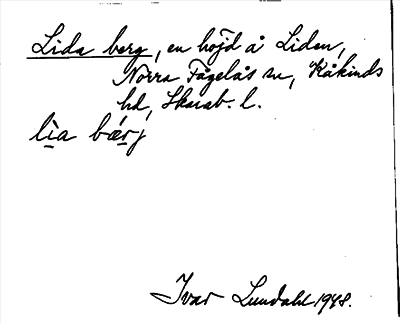 Lida berg, en höjd å Liden,
Norra Fågelås sn, Kåkinds
hd, Skarab. l.
lìa bærj
Ivar Lundahl 1948.